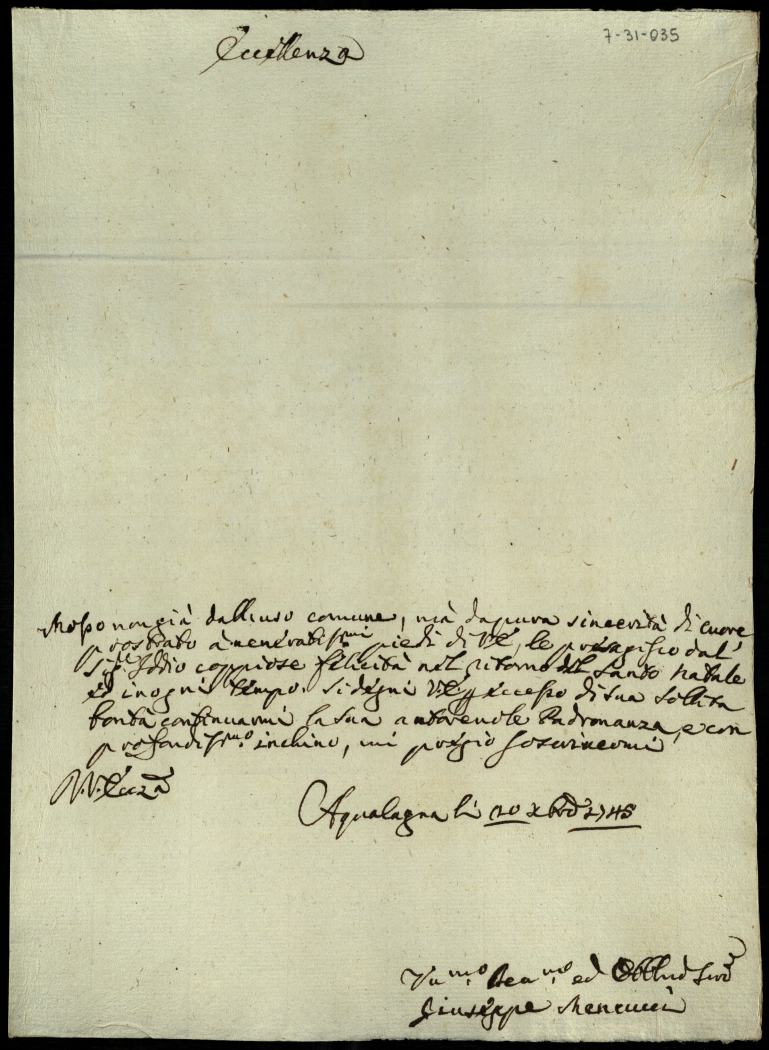 7-31-035
Eccellenza
Mosso non già dall'uso comune, mà da pura sincerità di cuore
prostrato à veneratissmi piedi di V.E., le presagisco dal
Sigre Iddio coppiose felicità nel ritorno del Santo Natale
ed in ogni tempo. Si degni V.E. p eccesso di sua solita
bontà continuarmi la sua autorevole Padronanza, e con
profondissmo inchino, mi pregio soscrivermi
D.V. Ecczа
Aqualagna li 20 Xbre 1745
Vmo Devmo ed Obblmo Serre
Giuseppe Mencucci